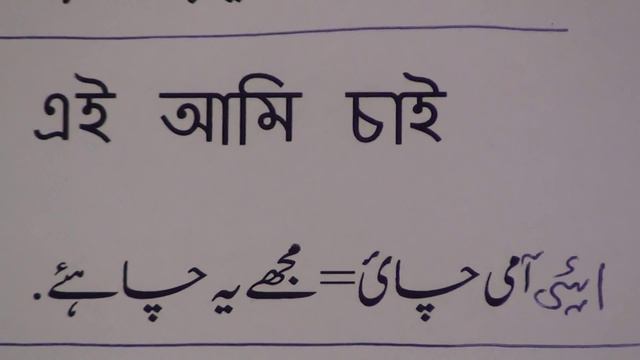 এই আমি চাই
ایئی آمی چائ = مجھے یہ چاہئے.